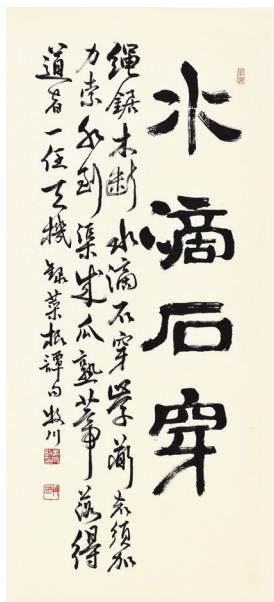 水滴石穿
绳鋸木断水滴石穿学道者须加
力索水到渠成瓜熟蒂落得
道者一任天機 録菜根譚句 牧川